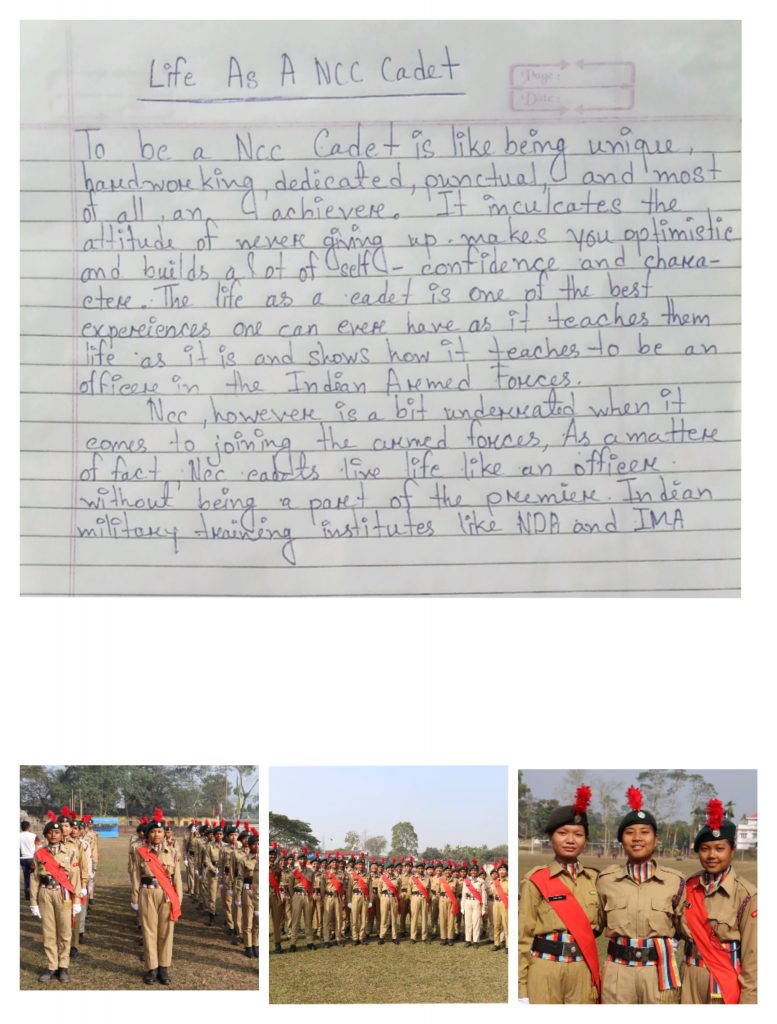 Life As A NCC Cadet
Page:
Date:
To be a Ncc Cadet is like being unique,
hardworking, dedicated, punctual, and most
of all, an achiever. It inculcates the
attitude of never giving up. makes you optimistic
and builds a lot of self - confidence and chara-
cter. The life as a cadet is one of the best
experiences one can ever have as it teaches them
life as it is and shows how it teaches to be an
officer in the Indian Armed Forces.
Ncc, however is a bit underrated when it
comes to joining the armed forces, As a matter
of fact, Ncc cadets live life like an officer
without being a part of the premier. Indian
military training institutes like NDA and IMA